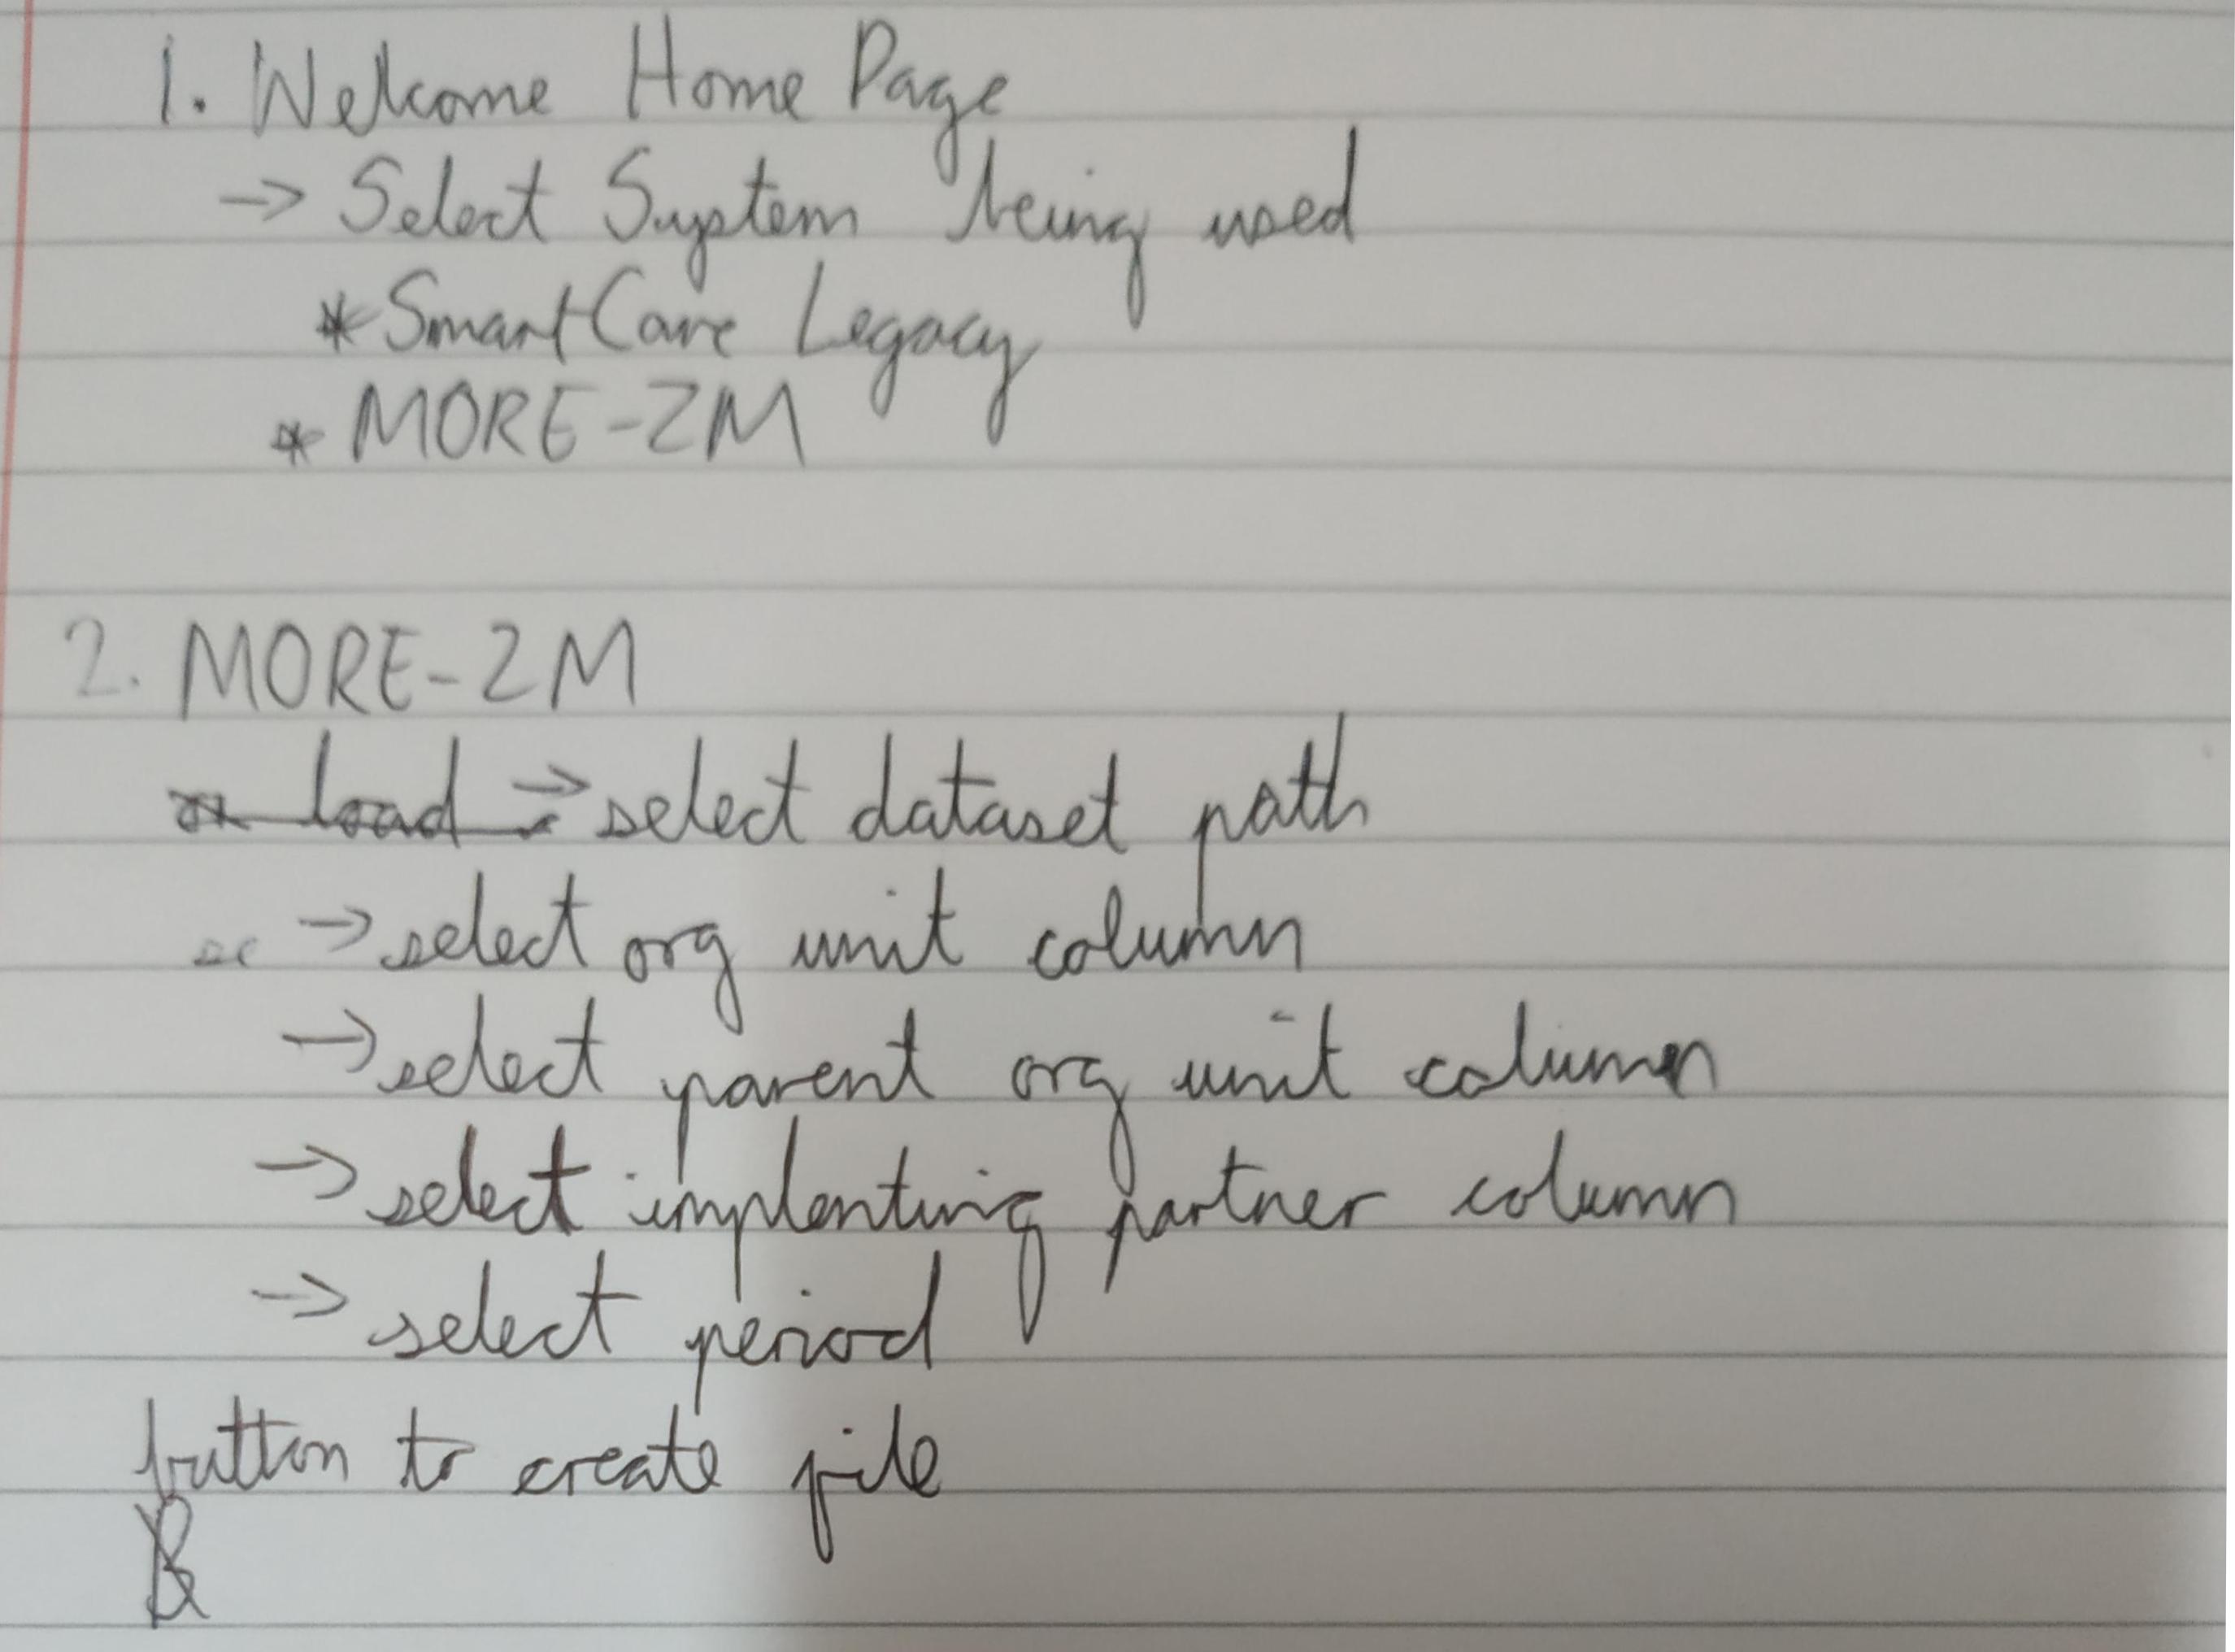 1. Welcome Home Page
→ Select System being used
* SmartCare Legacy
* MORE-ZM
2. MORE-ZM
load → select dataset path
se → select org unit column
→ select parent org unit column
→ select implenting partner column
→ select period
button to create file